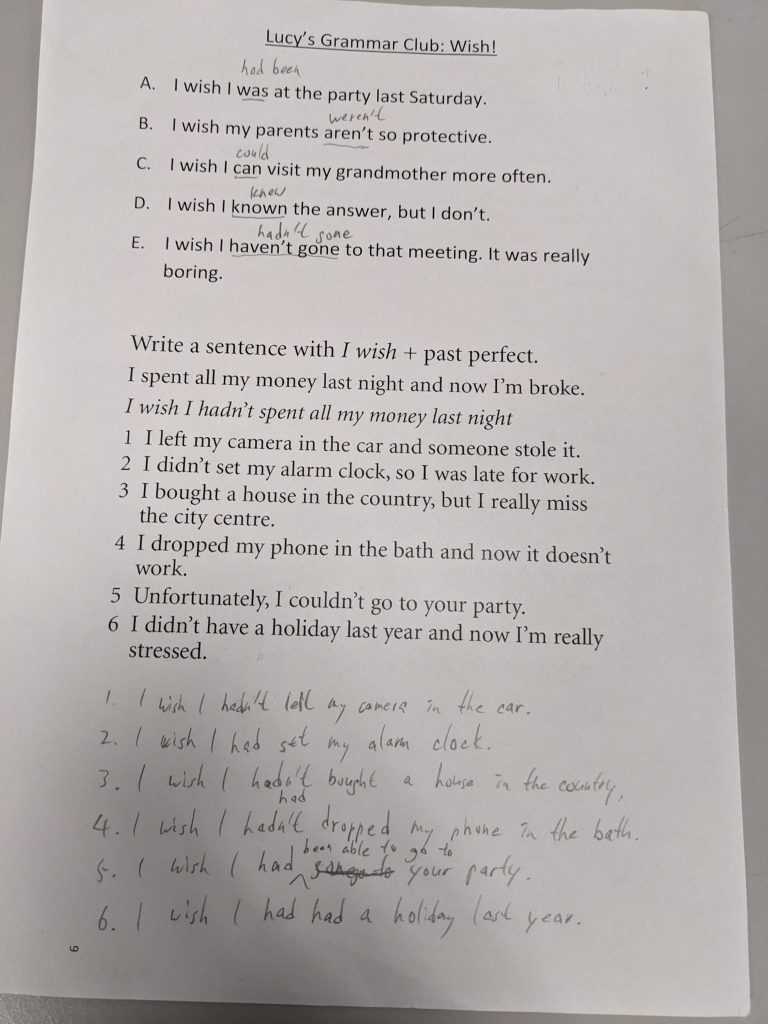 Lucy's Grammar Club: Wish!
had been
A. I wish I was at the party last Saturday.
weren't
B. I wish my parents aren't so protective.
could
C. I wish I can visit my grandmother more often.
knew
D. I wish I known the answer, but I don't.
hadn't gone
E. I wish I haven't gone to that meeting. It was really
boring.
Write a sentence with I wish + past perfect.
I spent all my money last night and now I'm broke.
I wish I hadn't spent all my money last night
1 I left my camera in the car and someone stole it.
2 I didn't set my alarm clock, so I was late for work.
3 I bought a house in the country, but I really miss
the city centre.
4 I dropped my phone in the bath and now it doesn't
work.
5 Unfortunately, I couldn't go to your party.
6 I didn't have a holiday last year and now I'm really
stressed.
1. I wish I hadn't left my camera in the car.
2. I wish I had set my alarm clock.
3. I wish I hadn't bought a house in the country,
had
4. I wish I hadn't dropped my phone in the bath.
been able to go to
5. I wish I had your party.
6. I wish I had had a holiday last year.
6